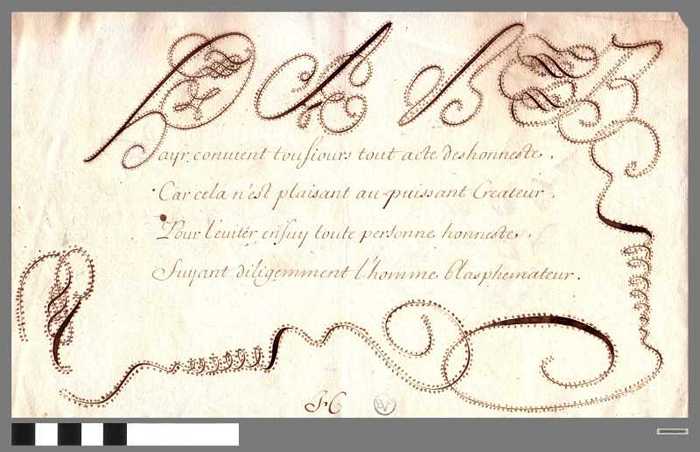 ayr conuient tousiours tout acte deshonneste,.
Car cela n'est plaisant au puissant Createur.
Pour l'euiter ensuy toute personne honneste,.
Fuyant diligemment l'homme blasphemateur.